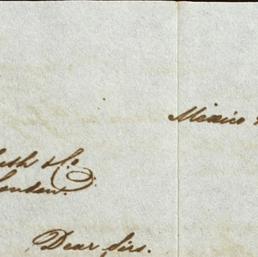 Mexico
& Co.
London.
Dear Sirs.